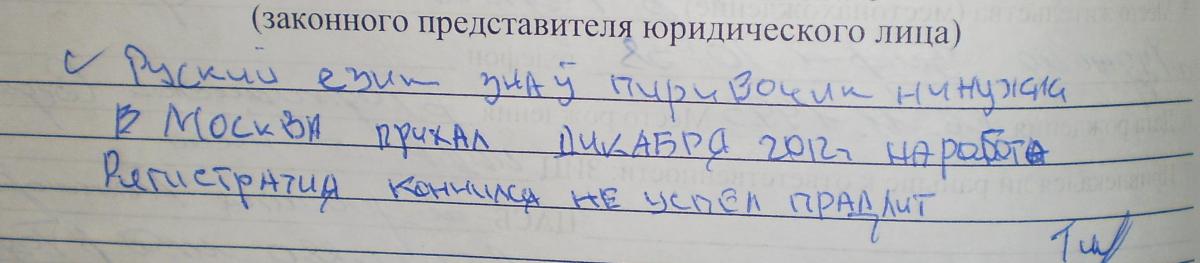 (законного представителя юридического лица)
Руский език знаў пиривочик нинужна
В Москва прихал дикабря 2012г на работа
Регистратия кончился не успел прадлит